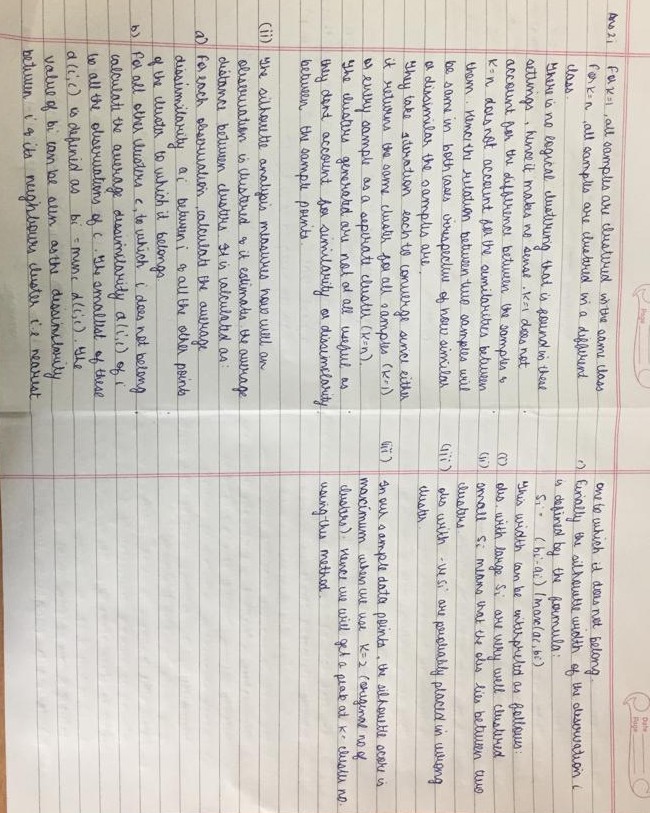 Page
Ans 2i For K=1, all samples are clustered in the same class
For K=n, all samples are clustered in a different
class.
There is no logical clustering that is found in these
settings, hence it makes no sense. K=1 does not
account for the difference between the samples &
K=n does not account for the similarities between
them. Hence the relation between two samples will
be same in both cases irrespective of how similar
or dissimilar the samples are.
They take iteration each to converge since either
it returns the same cluster for all samples (K=1)
or every sample as a seperate cluster (K=n).
The clusters generated are not at all useful as
they dont account for similarity or dissimilarity
between the sample points.
(ii) The silhouette analysis measures how well an
observation is clustered & it estimates the average
distance between clusters. It is calculated as:
a) For each observation, calculate the average
dissimilarity ai between i & all the other points
of the cluster to which it belongs.
b) For all other clusters c, to which i does not belong
calculate the average dissimilarity d(i,c) of i
to all the observations of c. The smallest of these
d(i,c) is defined as bi = minc d(i,c). The
value of bi can be seen as the dissimilarity
between i & its neighbours cluster i.e nearest
Date
Page
one to which it does not belong.
c) Finally the silhouette width of the observation i
is defined by the formula:
Si = (bi-ai) / max(ai,bi)
This width can be interpreted as follows:
(i) obs. with large Si are very well clustered
(ii) small Si means that the obs lies between two
clusters.
(iii) obs with -ve Si are probably placed in wrong
cluster.
(iii) In our sample data points, the silhouette score is
maximum when we use K=2 (original no of
clusters). Hence we will get a peak at K= cluster no.
using this method.